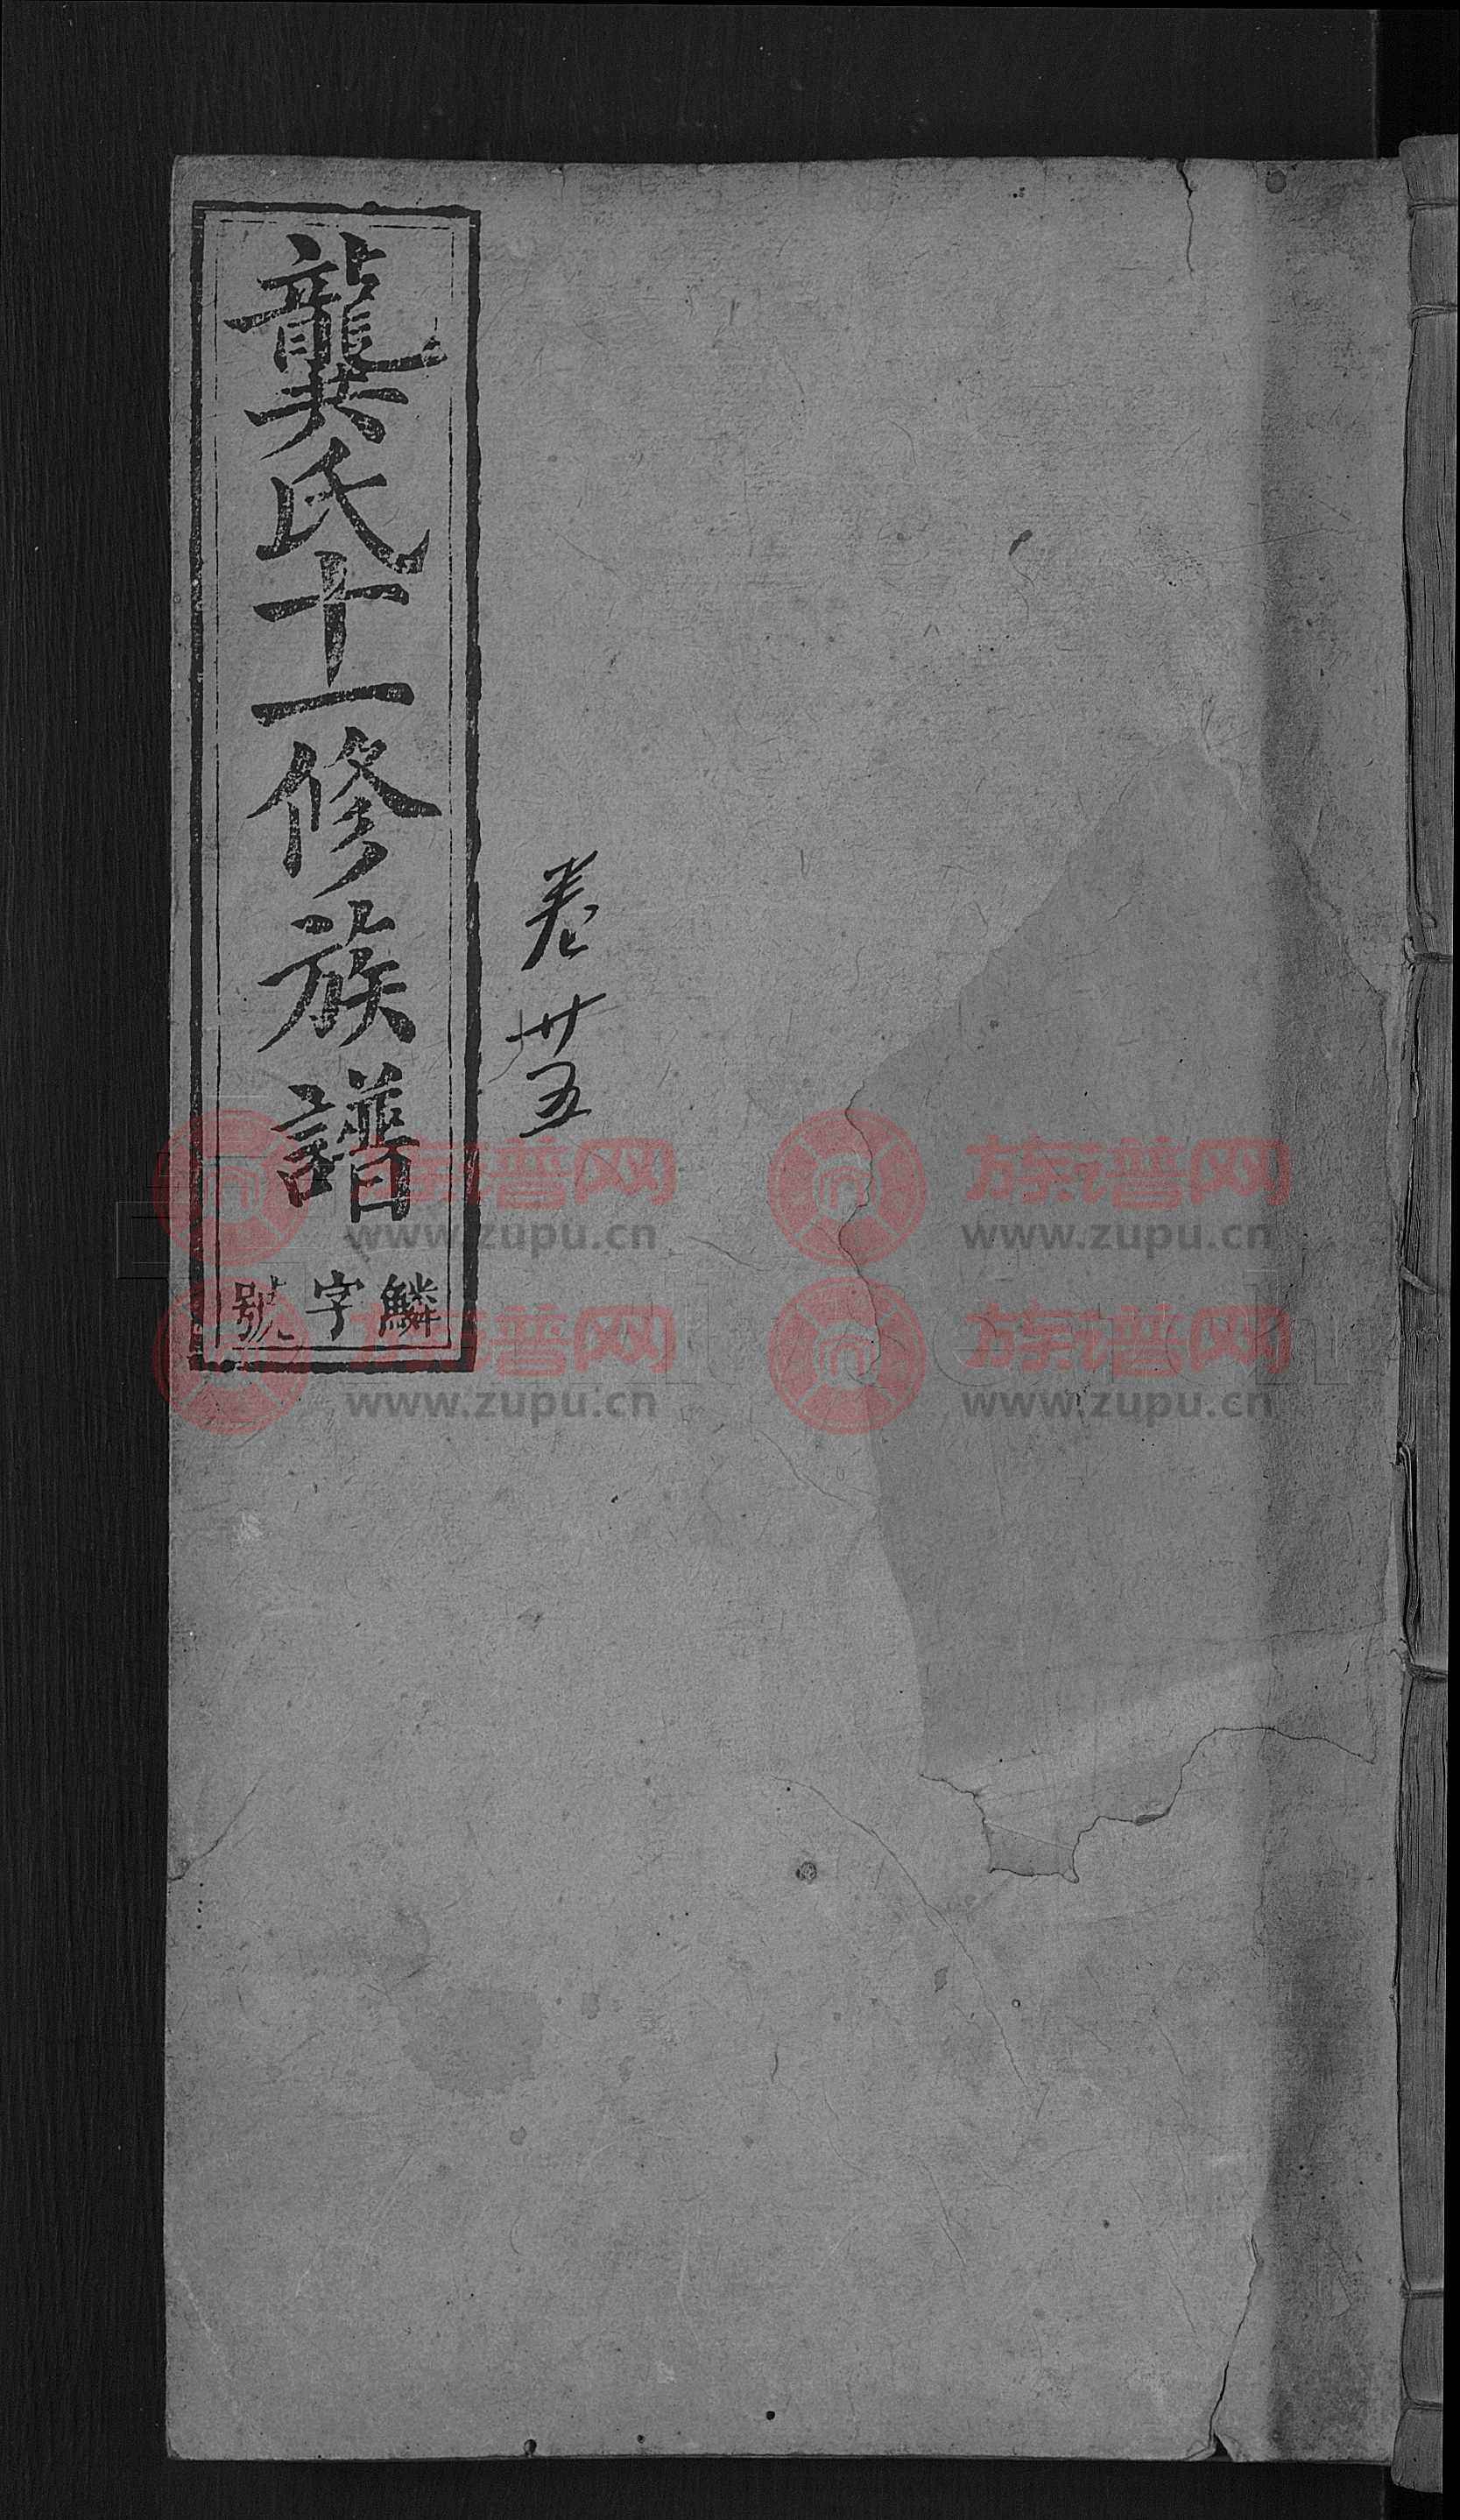 龔氏十一修族譜
鱗字號
卷廿五
族谱网
www.zupu.cn
族谱网
www.zupu.cn
族谱网
www.zupu.cn
族谱网
www.zupu.cn